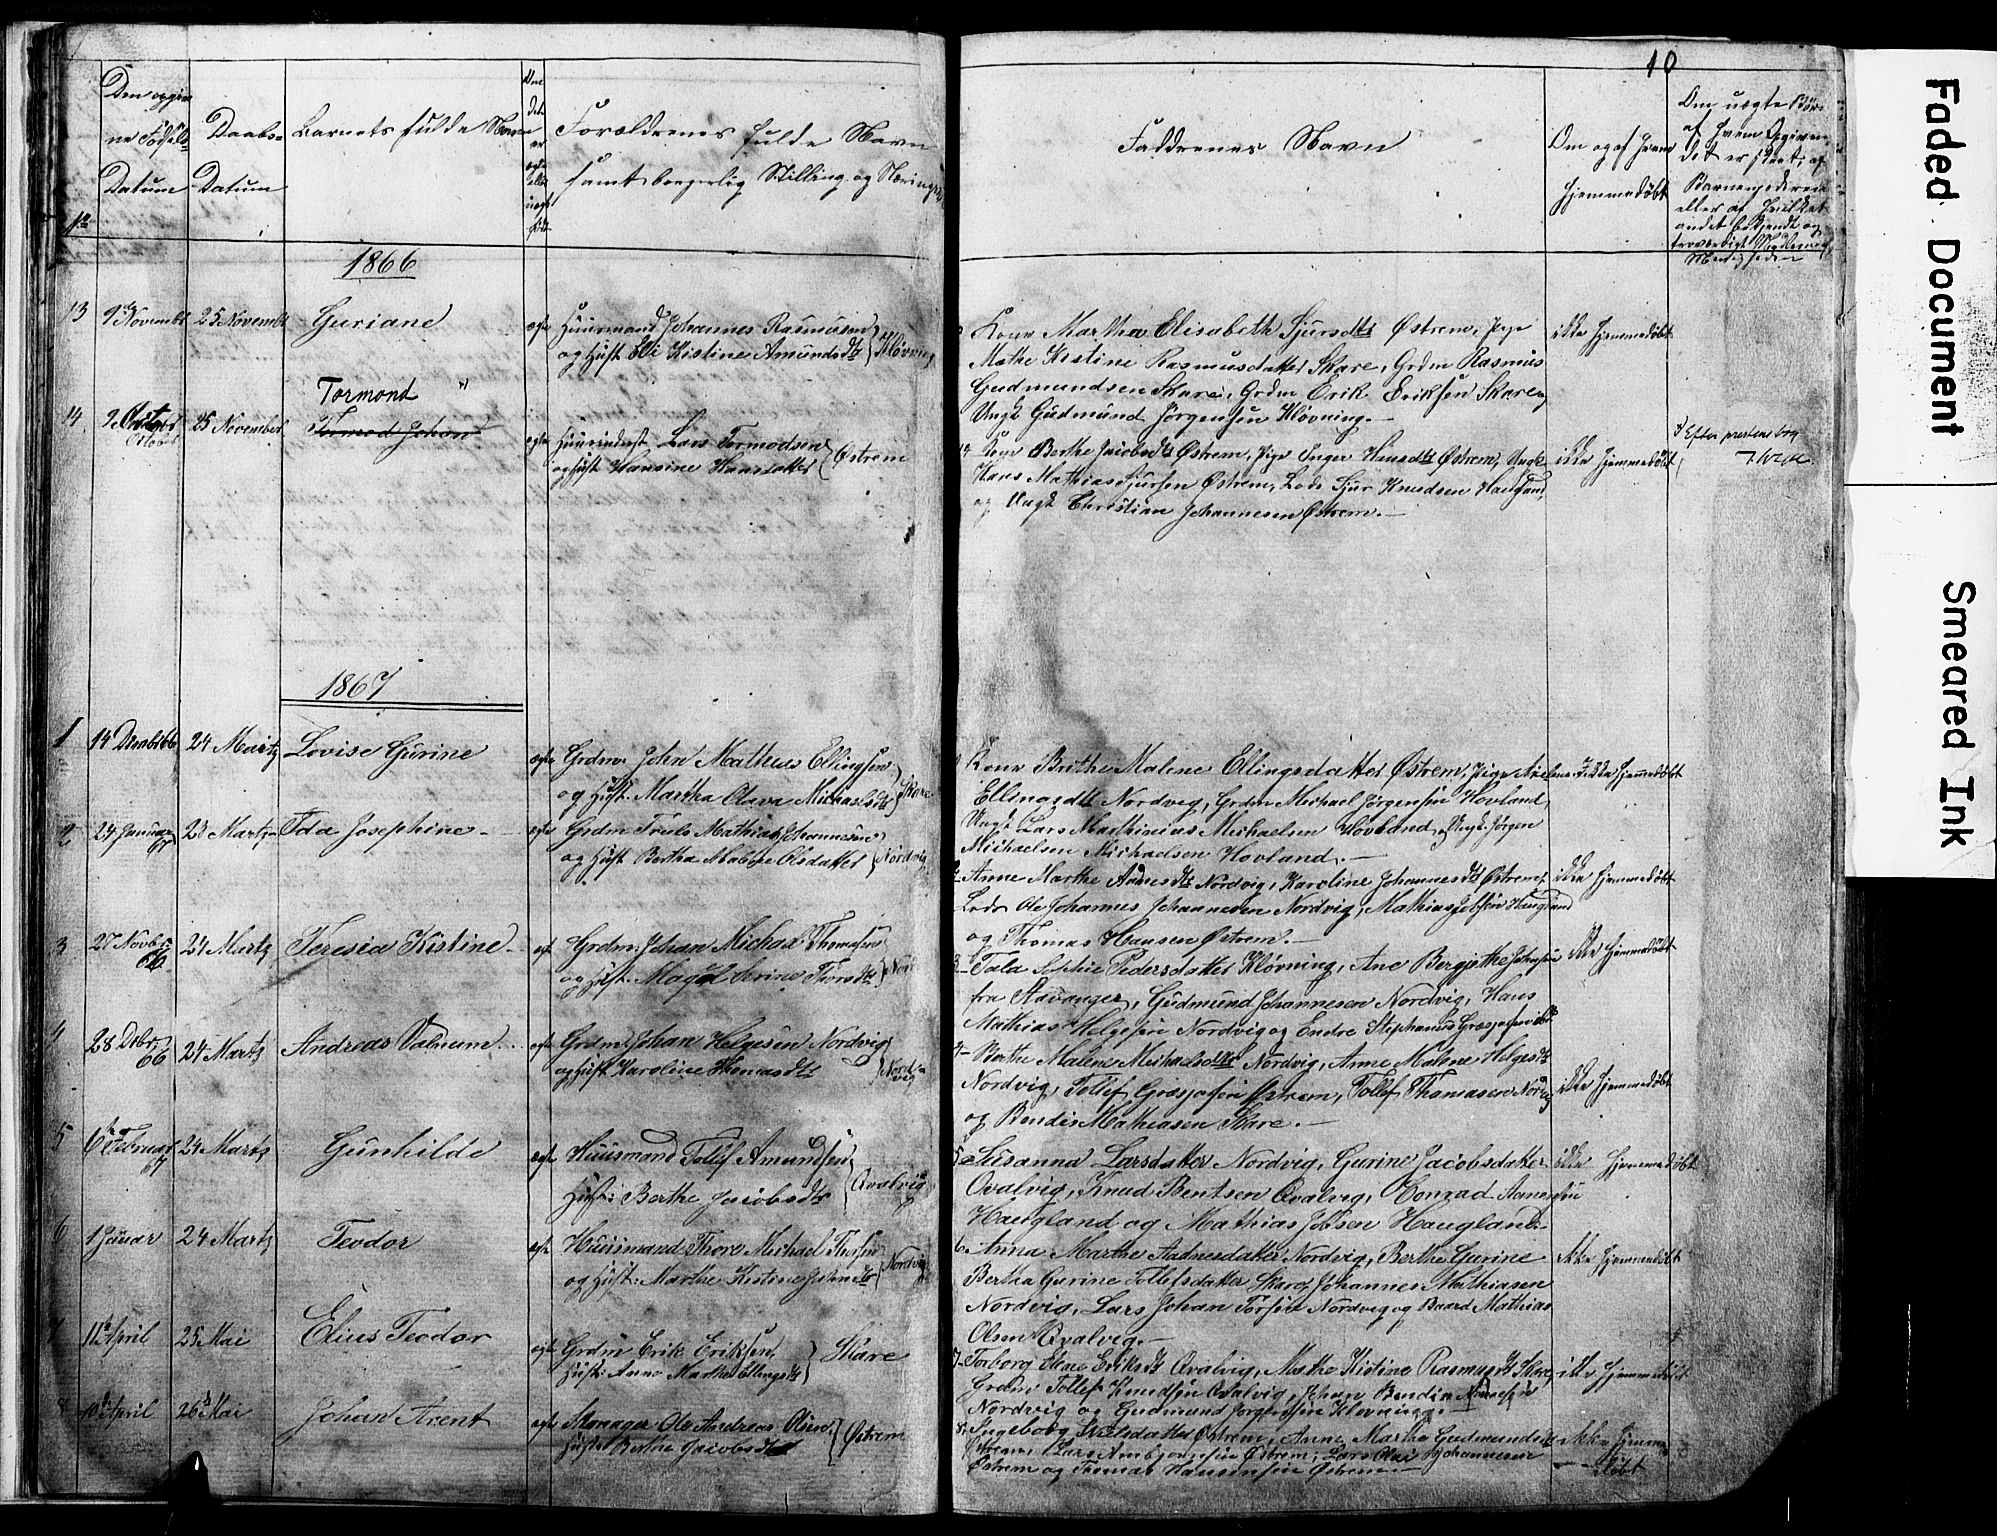 10
Faded Document
Smeared Ink
Den opgiv
ne Fødsels
Datum
Daabs-
Datum
Barnets fulde Navn
Om
det
er
ægte
eller
uægte
født
Forældrenes fulde Navn
samt borgerlig Stilling og Næring
Faddrenes Navn
Om og af hvem
hjemmedøbt
Om uægte Børn
af hvem Opgiven
det er skeet, af
Barnemoderen
eller af hvilket
andet bekjendt og
troværdigt
1866
13 9de Novembr 25 Novembr Guriane ægte Huusmand Johannes Rasmusen
og Hust Eli Kistine Amundsdtr } Kløvning
Kone Martha Elisabeth Sjursdtr Østrem, Pige
Mathe Kistine Rasmusdatter Skare, Grdm Rasmus
Gudmundsen Skare, Grdm Erik Eriksen Skare og
Ungk Gudmund Jørgensen Kløvning.—
ikke hjemmedøbt
Tormond
14 9 Octobr 25 November Tormod Johan ægte Lars Tormodsen
og Hust Hansine Hansdatter { Østrem
14 Pige Berthe Jacobsdtr Østrem, Pige Inger Hansdtr Østrem, Ungk
Hans Mathias Sjursen Østrem, Lods Sjur Knudsen Haugland
og Ungk Christian Johannesen Østrem.—
ikke hjemmedøbt
Efter prestens bog
1867
1 14 Decbr 66 24 Marts Lovise Gurine ægte Grdm. John Matheus Ellingsen
og Hust. Martha Olava Michaelsdtr } Skare
Kone Brithe Maline Ellingsdatter Østrem, Pige
Ellingsdtr Nordvig, Grdm Michael Jørgensen Hovland,
Ungk Lars Mathinius Michaelsen Hovland, Ungk. Jørgen
Michaelsen Michaelsen Hovland.—
ikke hjemmedøbt
2 24 Januar 67 23 Marts Ida Josephine ægte Grdm Truls Mathias Johannesen
og Hust Bertha Maline Olsdatter { Nordvig
2 Anne Marthe Adnesdtr Nordvig, Karoline Johannesdtr Østrem,
Lods Ole Johannes Johannesen Nordvig, Mathias Jobsen Haugland
og Thomas Hansen Østrem.—
ikke hjemmedøbt
3 27 Novbr 66 24 Marts Teresia Kistine ægte Grdm. Johan Michael Thomasen
og Hust. Magel Serine Thorsdtr
3 Tala Sophie Pedersdatter Kløvning, Ane Bergjethe
fra Stavanger, Gudmund Johannesen Nordvig, Hans
Mathias Helgesen Nordvig og Endre Stephanus
ikke hjemmedøbt
4 28 Decbr 66 24 Marts Andreas Valnum ægte Grdm. Johan Helgesen Nordvig
og Hust Karoline Thomasdtr } Nordvig
4 Berthe Malene Michaelsdtr Nordvig, Anne Malene Helgesdtr
Nordvig, Tollef Østrem, Tollef Thomasen Nordvig
og Bendix Mathiasen Skare.—
ikke hjemmedøbt
5 6te Februar 67 24 Marts Gunhilde ægte Huusmand Tollef Amundsen
Hust: Berthe Jacobsdtr { Qvalvig
5 Susanna Larsdatter Nordvig, Gurine Jacobsdatter
Qvalvig, Knud Bentsen Qvalvig, Conrad Aanensen
Haugland og Mathias Jobsen Haugland
ikke hjemmedøbt
6 1 Januar 24 Marts Teodor ægte Huusmand Thore Michael Thorsen
og Hust: Marthe Kistine { Nordvig
6 Anna Marthe Aadnesdatter Nordvig, Berthe Gurine
Bertha Gurine Tollefsdatter Skare, Johannes Mathiasen
Nordvig, Lars Johan Torsen Nordvig og Baard Mathias
Olsen Qvalvig.—
ikke hjemmedøbt
7 11te April 25 Mai Elius Teodor ægte Grdm Erik Eriksen
Hust: Anne Marthe Ellingsdtr } Skare
7 Torborg Elene Eriksdtr Qvalvig, Marthe Kistine Rasmusdtr Skare,
Grdm Tollef Knudsen Qvalvig, Johan Bendix
Nordvig og Gudmund Jørgensen Kløvning.
ikke hjemmedøbt
8 10de April 26de Mai Johan Arent ægte Skomager Ole Andreas Olsen
Hust: Berthe Jacobsdtr { Østrem
8 Ingeborg Nilsdatter Østrem, Anne Marthe Gudmundsdtr
Østrem, Lars Østrem, Lars Olai Johannesen
Østrem og Thomas Hansen Østrem.—
ikke hjemme
døbt